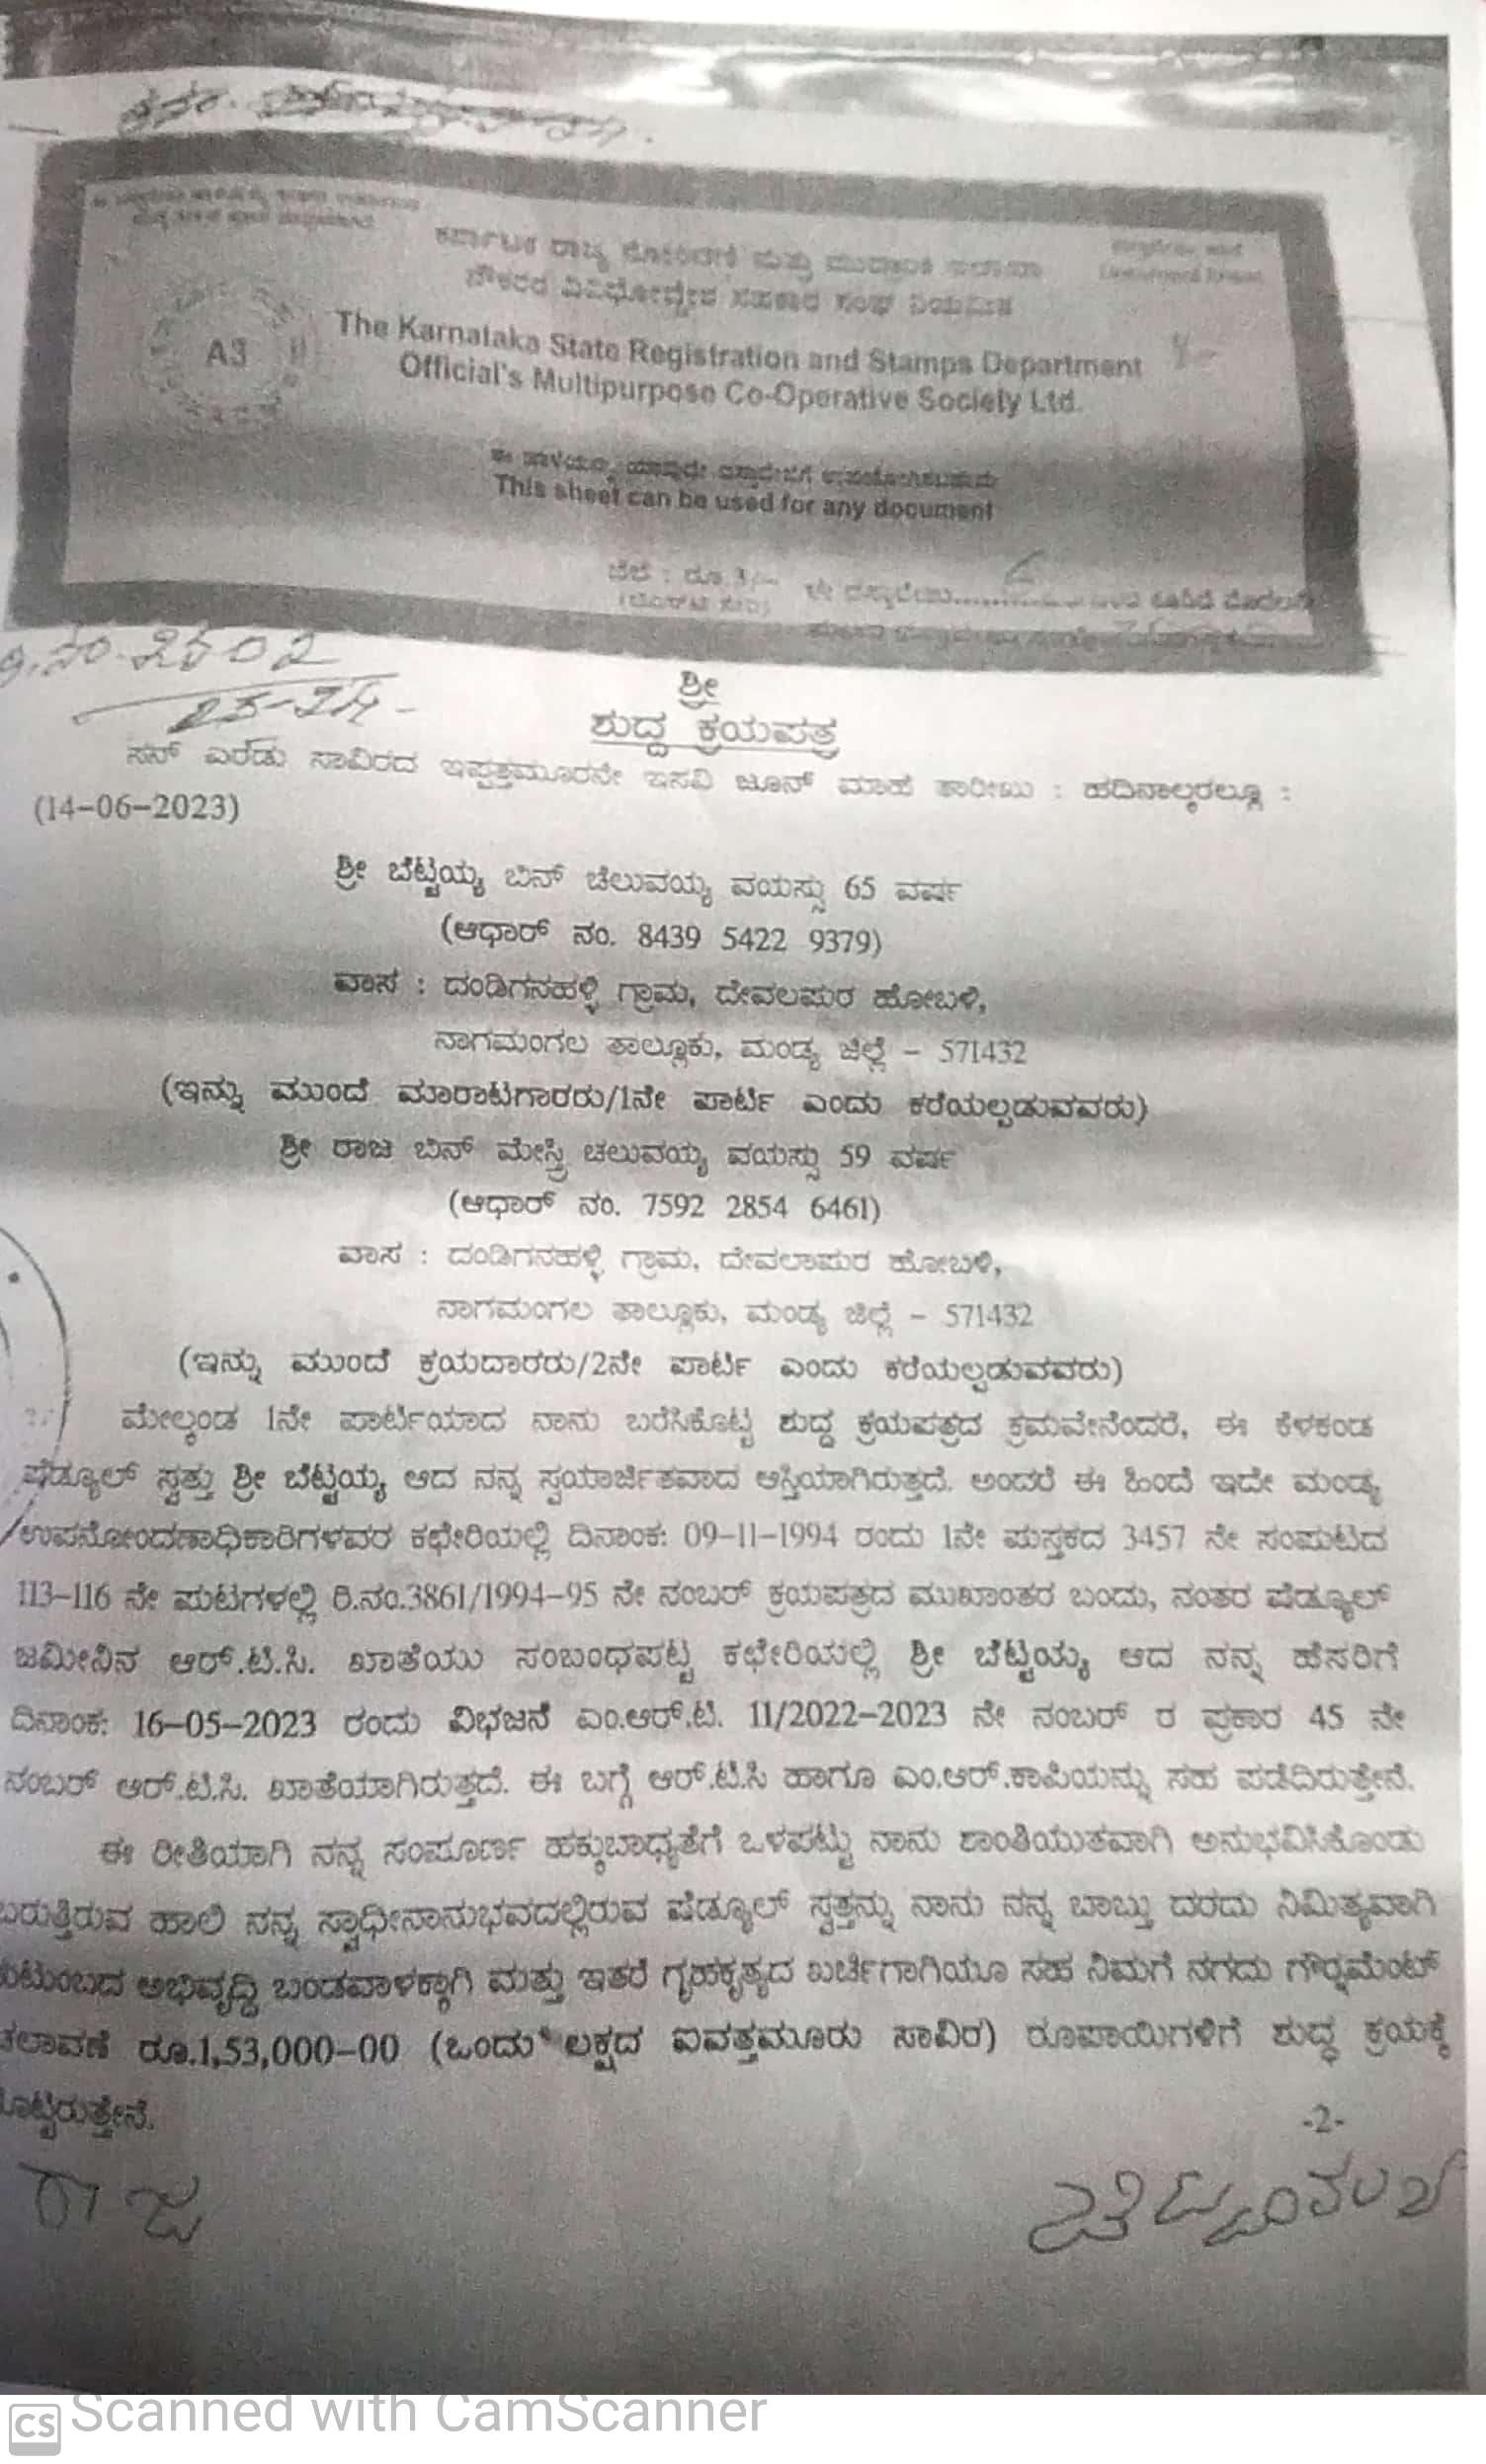 ಕರ್ನಾಟಕ ರಾಜ್ಯ ನೋಂದಣಿ ಮತ್ತು ಮುದ್ರಾಂಕ ಇಲಾಖಾ
ನೌಕರರ ವಿವಿಧೋದ್ದೇಶ ಸಹಕಾರ ಸಂಘ ನಿಯಮಿತ
A3
The Karnataka State Registration and Stamps Department
Official's Multipurpose Co-Operative Society Ltd.
ಈ ಹಾಳೆಯನ್ನು ಯಾವುದೇ ದಸ್ತಾವೇಜಿಗೆ ಉಪಯೋಗಿಸಬಹುದು
This sheet can be used for any document
ಬೆಲೆ : ರೂ.3/-
ಶ್ರೀ
ಶುದ್ದ ಕ್ರಯಪತ್ರ
ಸನ್ ಎರಡು ಸಾವಿರದ ಇಪ್ಪತ್ತಮೂರನೇ ಇಸವಿ ಜೂನ್ ಮಾಹೆ ತಾರೀಖು : ಹದಿನಾಲ್ಕರಲ್ಲೂ :
(14-06-2023)
ಶ್ರೀ ಬೆಟ್ಟಯ್ಯ ಬಿನ್ ಚೆಲುವಯ್ಯ ವಯಸ್ಸು 65 ವರ್ಷ
(ಆಧಾರ್ ನಂ. 8439 5422 9379)
ವಾಸ : ದಂಡಿಗನಹಳ್ಳಿ ಗ್ರಾಮ, ದೇವಲಪುರ ಹೋಬಳಿ,
ನಾಗಮಂಗಲ ತಾಲ್ಲೂಕು, ಮಂಡ್ಯ ಜಿಲ್ಲೆ – 571432
(ಇನ್ನು ಮುಂದೆ ಮಾರಾಟಗಾರರು/1ನೇ ಪಾರ್ಟಿ ಎಂದು ಕರೆಯಲ್ಪಡುವವರು)
ಶ್ರೀ ರಾಜ ಬಿನ್ ಮೇಸ್ತ್ರಿ ಚಲುವಯ್ಯ ವಯಸ್ಸು 59 ವರ್ಷ
(ಆಧಾರ್ ನಂ. 7592 2854 6461)
ವಾಸ : ದಂಡಿಗನಹಳ್ಳಿ ಗ್ರಾಮ, ದೇವಲಾಪುರ ಹೋಬಳಿ,
ನಾಗಮಂಗಲ ತಾಲ್ಲೂಕು, ಮಂಡ್ಯ ಜಿಲ್ಲೆ – 571432
(ಇನ್ನು ಮುಂದೆ ಕ್ರಯದಾರರು/2ನೇ ಪಾರ್ಟಿ ಎಂದು ಕರೆಯಲ್ಪಡುವವರು)
ಮೇಲ್ಕಂಡ 1ನೇ ಪಾರ್ಟಿಯಾದ ನಾನು ಬರೆಸಿಕೊಟ್ಟ ಶುದ್ದ ಕ್ರಯಪತ್ರದ ಕ್ರಮವೇನೆಂದರೆ, ಈ ಕೆಳಕಂಡ
ಷೆಡ್ಯೂಲ್ ಸ್ವತ್ತು ಶ್ರೀ ಬೆಟ್ಟಯ್ಯ ಆದ ನನ್ನ ಸ್ವಯಾರ್ಜಿತವಾದ ಆಸ್ತಿಯಾಗಿರುತ್ತದೆ. ಅಂದರೆ ಈ ಹಿಂದೆ ಇದೇ ಮಂಡ್ಯ
ಉಪನೋಂದಣಾಧಿಕಾರಿಗಳವರ ಕಛೇರಿಯಲ್ಲಿ ದಿನಾಂಕ: 09-11-1994 ರಂದು 1ನೇ ಪುಸ್ತಕದ 3457 ನೇ ಸಂಪುಟದ
113-116 ನೇ ಪುಟಗಳಲ್ಲಿ ರಿ.ನಂ.3861/1994-95 ನೇ ನಂಬರ್ ಕ್ರಯಪತ್ರದ ಮುಖಾಂತರ ಬಂದು, ನಂತರ ಷೆಡ್ಯೂಲ್
ಜಮೀನಿನ ಆರ್.ಟಿ.ಸಿ. ಖಾತೆಯು ಸಂಬಂಧಪಟ್ಟ ಕಛೇರಿಯಲ್ಲಿ ಶ್ರೀ ಬೆಟ್ಟಯ್ಯ ಆದ ನನ್ನ ಹೆಸರಿಗೆ
ದಿನಾಂಕ: 16-05-2023 ರಂದು ವಿಭಜನೆ ಎಂ.ಆರ್.ಟಿ. 11/2022-2023 ನೇ ನಂಬರ್ ರ ಪ್ರಕಾರ 45 ನೇ
ನಂಬರ್ ಆರ್.ಟಿ.ಸಿ. ಖಾತೆಯಾಗಿರುತ್ತದೆ. ಈ ಬಗ್ಗೆ ಆರ್.ಟಿ.ಸಿ ಹಾಗೂ ಎಂ.ಆರ್.ಕಾಪಿಯನ್ನು ಸಹ ಪಡೆದಿರುತ್ತೇನೆ.
ಈ ರೀತಿಯಾಗಿ ನನ್ನ ಸಂಪೂರ್ಣ ಹಕ್ಕುಬಾಧ್ಯತೆಗೆ ಒಳಪಟ್ಟು ನಾನು ಶಾಂತಿಯುತವಾಗಿ ಅನುಭವಿಸಿಕೊಂಡು
ಬರುತ್ತಿರುವ ಹಾಲಿ ನನ್ನ ಸ್ವಾಧೀನಾನುಭವದಲ್ಲಿರುವ ಷೆಡ್ಯೂಲ್ ಸ್ವತ್ತನ್ನು ನಾನು ನನ್ನ ಬಾಬ್ತು ದರದು ನಿಮಿತ್ಯವಾಗಿ
ಕುಟುಂಬದ ಅಭಿವೃದ್ಧಿ ಬಂಡವಾಳಕ್ಕಾಗಿ ಮತ್ತು ಇತರೆ ಗೃಹಕೃತ್ಯದ ಖರ್ಚಿಗಾಗಿಯೂ ಸಹ ನಿಮಗೆ ನಗದು ಗೌರ್ನಮೆಂಟ್
ಚಲಾವಣೆ ರೂ.1,53,000-00 (ಒಂದು ಲಕ್ಷದ ಐವತ್ತಮೂರು ಸಾವಿರ) ರೂಪಾಯಿಗಳಿಗೆ ಶುದ್ಧ ಕ್ರಯಕ್ಕೆ
ಕೊಟ್ಟಿರುತ್ತೇನೆ.
-2-
ರಾಜ
CS Scanned with CamScanner